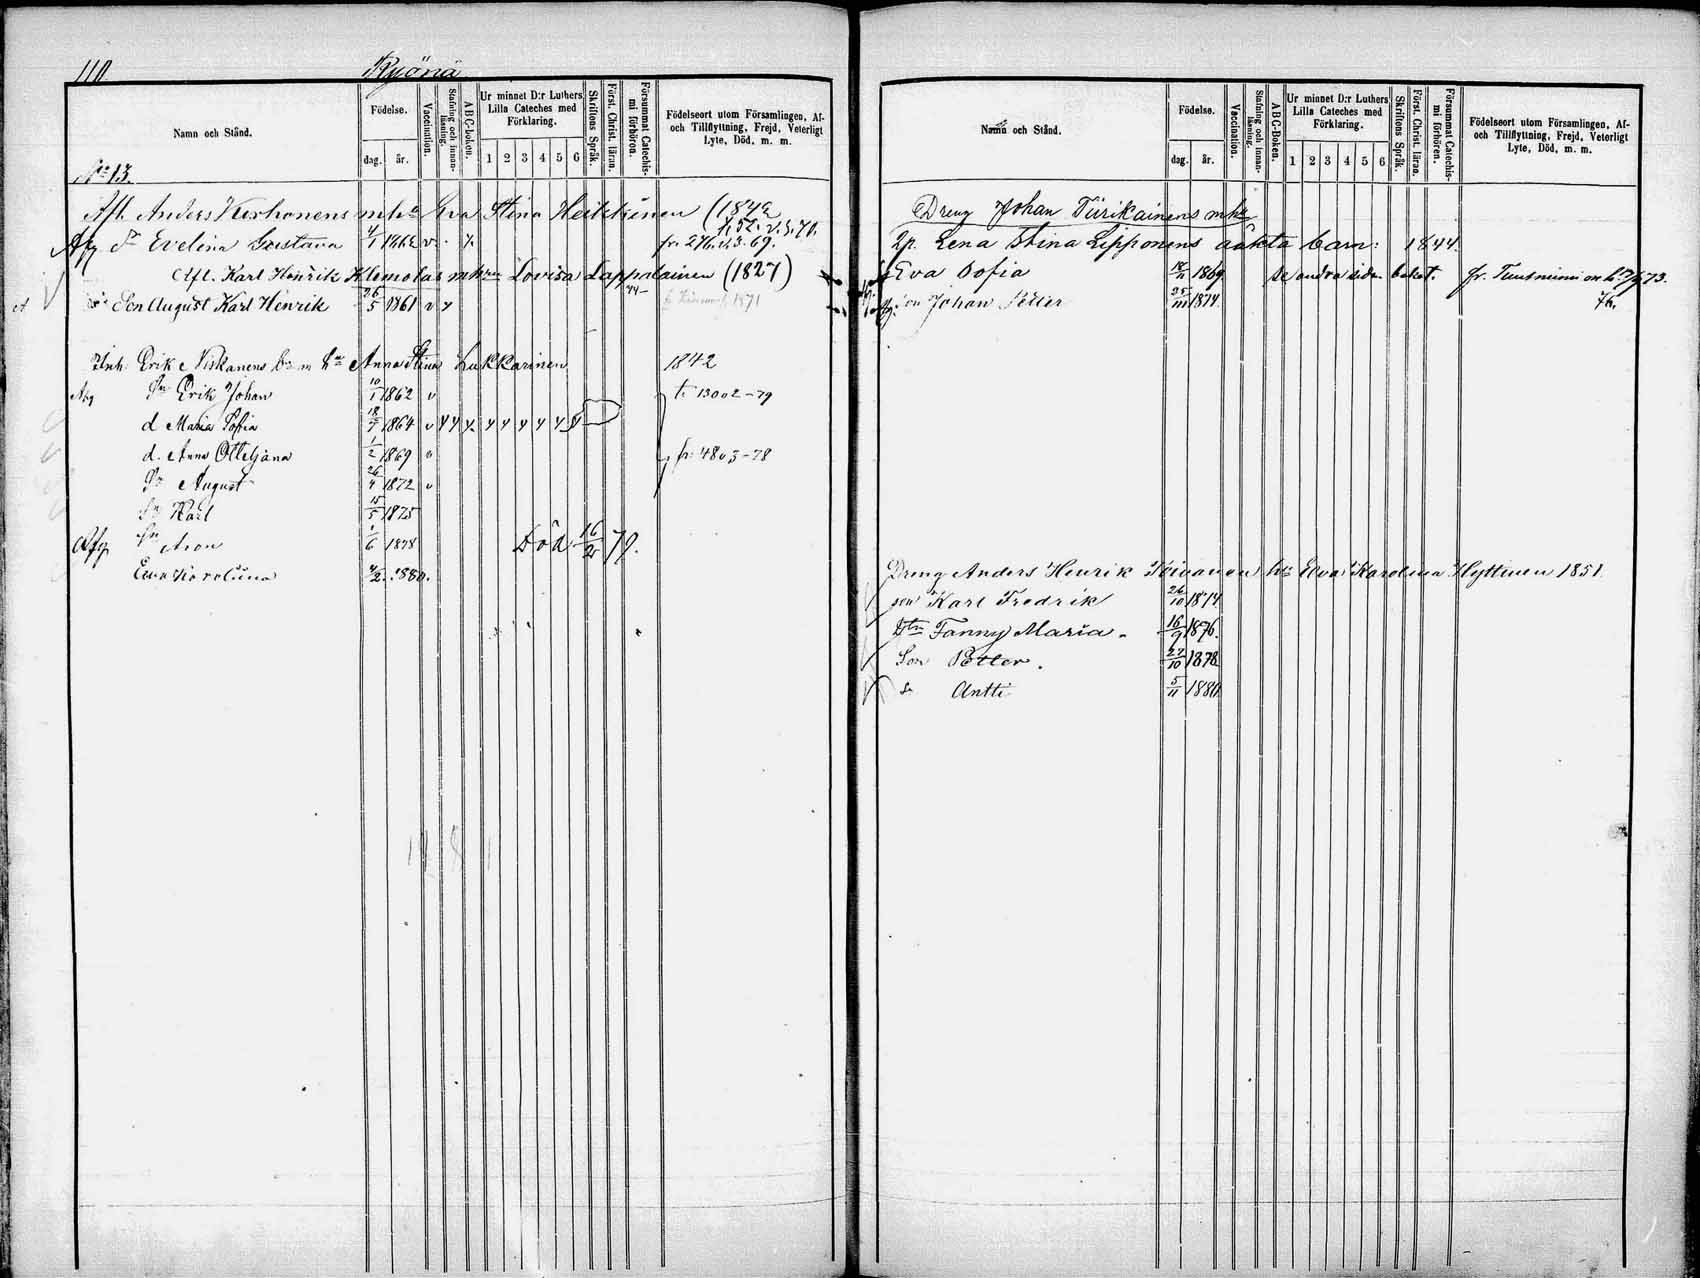 110 Ryönä
Namn och Stånd.
Födelse.
dag. år.
Vaccination.
Stafning och innanläsning.
ABC-boken.
Ur minnet D:r Luthers Lilla Cateches med Förklaring.
1 2 3 4 5 6
Skriftens Språk.
Först. Christ. läran.
Försummat Catechismi förhören.
Födelseort utom Församlingen, Af- och Tillflyttning, Frejd, Veterligt Lyte, Död, m. m.
No 13.
Afl. Anders Korhonens Eva Stina Heikkinen (1842
f. 52. v. 3. 70.
Afg Dr Evelina Gustava 4/1 1862 v. fr. 276. v. 3. 69.
Afl. Karl Henrik Klemolas Lovisa Lappalainen (1827)
Son August Karl Henrik 26/5 1861 v y 1871
Inh. Erik Niskanens Anna Stina Lukkarinen 1842
Afg Sn Erik Johan 10/1 1862 v t. 130 o 2-79
d Maria Sofia 18/7 1864 v y y y. y y y y y y
d. Anna Ottiljana 1/2 1869 v fr. 48 o 3-78
Sn August 26/4 1872 v
Sn Karl 15/5 1875
Afg Sn Aron 1/6 1878 Död 16/2 79.
Eeva Karoliina 4/2. 1880.
Namn och Stånd.
Födelse.
dag. år.
Vaccination.
Stafning och innanläsning.
ABC-Boken.
Ur minnet D:r Luthers Lilla Cateches med Förklaring.
1 2 3 4 5 6
Skriftens Språk.
Först. Christ. läran.
Försummat Catechismi förhören.
Födelseort utom Församlingen, Af- och Tillflyttning, Frejd, Veterligt Lyte, Död, m. m.
Dreng Johan Tiirikainens
Lena Stina Lipponens oäkta barn: 1844.
Eva Sofia 1869. se andra sidn 73.
son Johan Petter 25/11 1874. 76.
Dreng Anders Henrik Toivanen Eva Karolina Hyttinen 1851.
son Karl Fredrik 26/10 1874
Dtr Fanny Maria. 16/9 1876.
Son Petter. 27/10 1878
Sn Antti 5/11 1880.